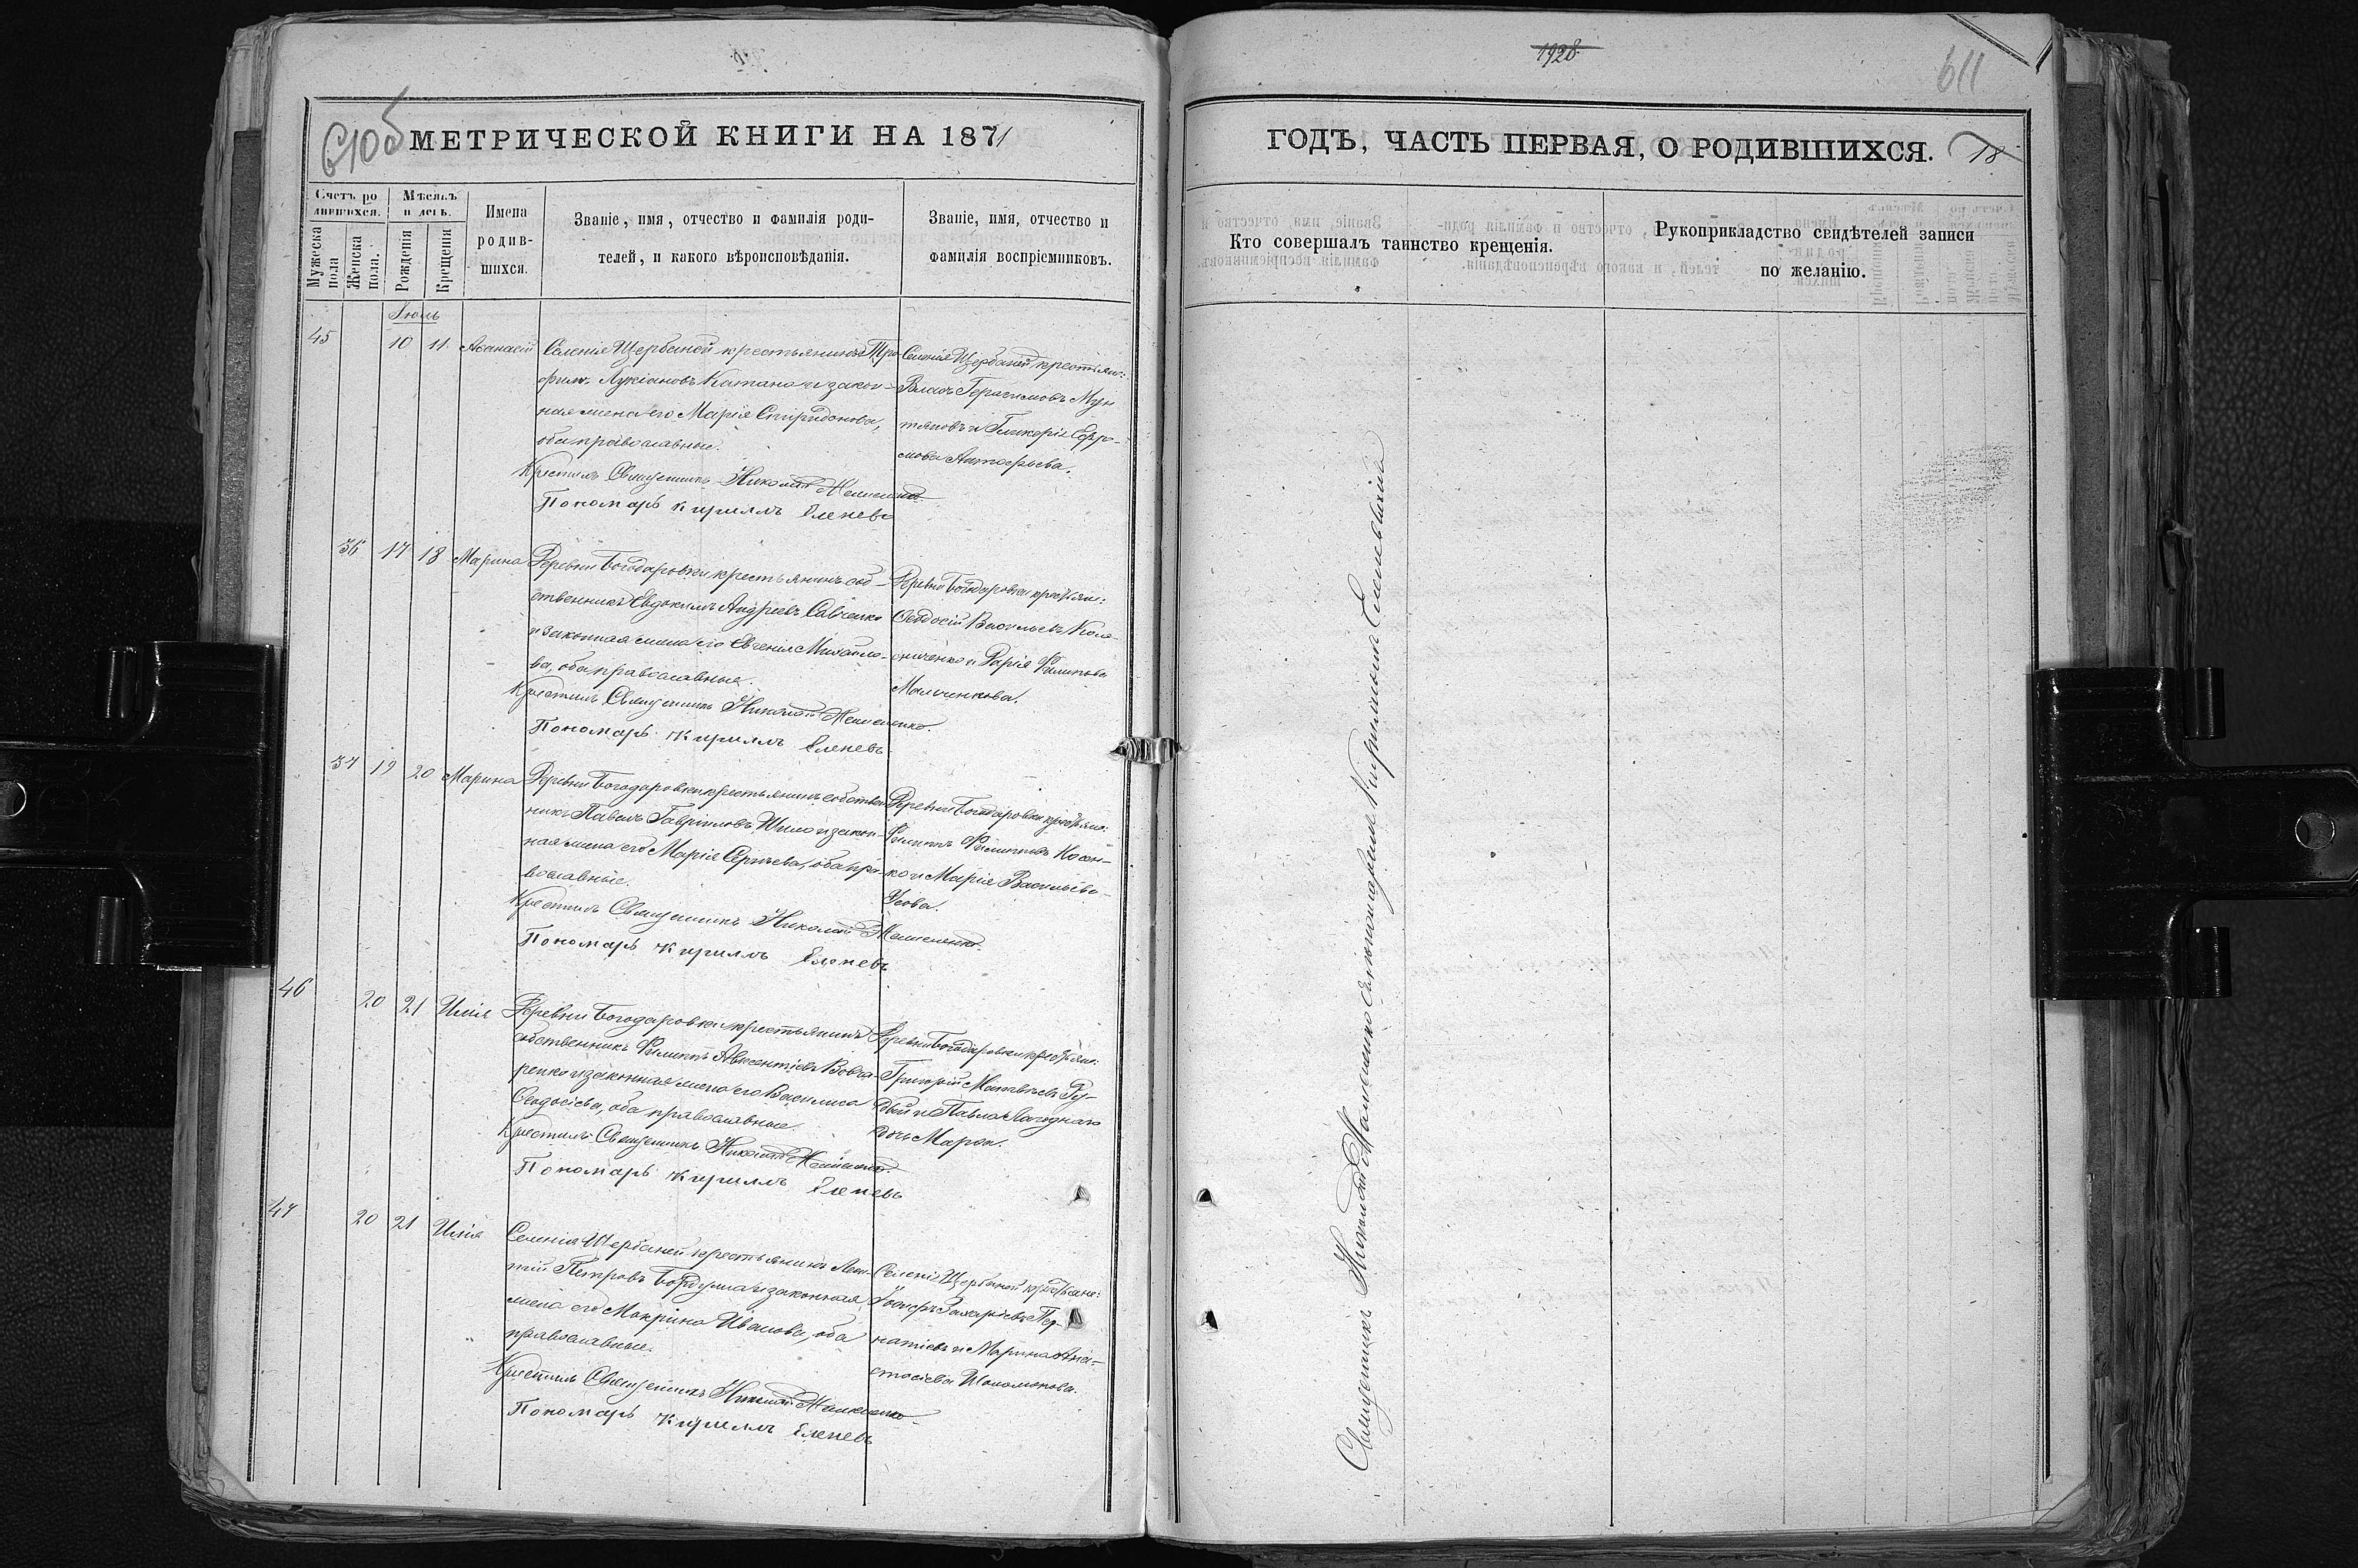 610б
МЕТРИЧЕСКОЙ КНИГИ НА 1871
Счетъ родившихся.
Мужеска пола
Женска пола.
Мѣсяцъ и день.
Рожденія
Крещенія
Имена
родив-
шихся.
Званіе, имя, отчество и фамилія роди-
телей, и какого вѣроисповѣданія.
Званіе, имя, отчество и
фамилія воспріемниковъ.
Іюль
45 10 11 Аѳанасій
Селенія Щербаней крестьянинъ Тро-
фимъ Лукіановъ Катана и закон-
ная жена его Марія Спиридонова,
оба православные.
Крестилъ Священникъ Николай
Пономарь Кириллъ Еленевъ
Селенія Щербаней крестьян:
Власъ Герасимовъ Мун
тяновъ и Гликерія Ефре-
мова
36 17 18 Марина
Деревни Богодаровки крестьянинъ соб-
ственникъ Евдокимъ Андреевъ Савченко
и законная жена его Евгенія Михайло-
ва, оба православные.
Крестилъ Священникъ Николай
Пономарь Кириллъ Еленевъ
Деревни Богодаровки крестьян:
Ѳеодосій Васильевъ
и Дарія Филипова
37 19 20 Марина
Деревни Богодаровки крестьянинъ собствен
никъ Павелъ Гавріиловъ Шило и закон-
ная жена его Марія Сергѣева, оба пра-
вославные.
Крестилъ Священникъ Николай
Пономарь Кириллъ Еленевъ
Деревни Богодаровки крестьян:
Филиппъ Филипповъ Косен-
ко и Марія Васильева
Усова.
46 20 21 Илія
Деревни Богодаровки крестьянинъ
собственникъ Филиппъ Авксентіевъ Бовга-
ренко и законная жена его Василиса
Ѳеодосіева, оба православные.
Крестилъ Священникъ Николай
Пономарь Кириллъ Еленевъ
Деревни Богодаровки крестьян:
Григорій Матвѣевъ Ру-
дый и Павла
дочь Марѳа.
47 20 21 Илія
Селенія Щербаней крестьянинъ Леон-
тій Петровъ Бордуша и законная
жена его Макрина Иванова, оба
православные.
Крестилъ Священникъ Николай
Пономарь Кириллъ Еленевъ
Селенія Щербаней крестьяне:
Іосифъ Захаріевъ Пер-
натіевъ и Марина Ана-
стасіева Шоломонова.
1928
611
ГОДЪ, ЧАСТЬ ПЕРВАЯ, О РОДИВШИХСЯ.
18
Кто совершалъ таинство крещенія.
Рукоприкладство свидѣтелей записи
по желанію.
Священникъ Николай